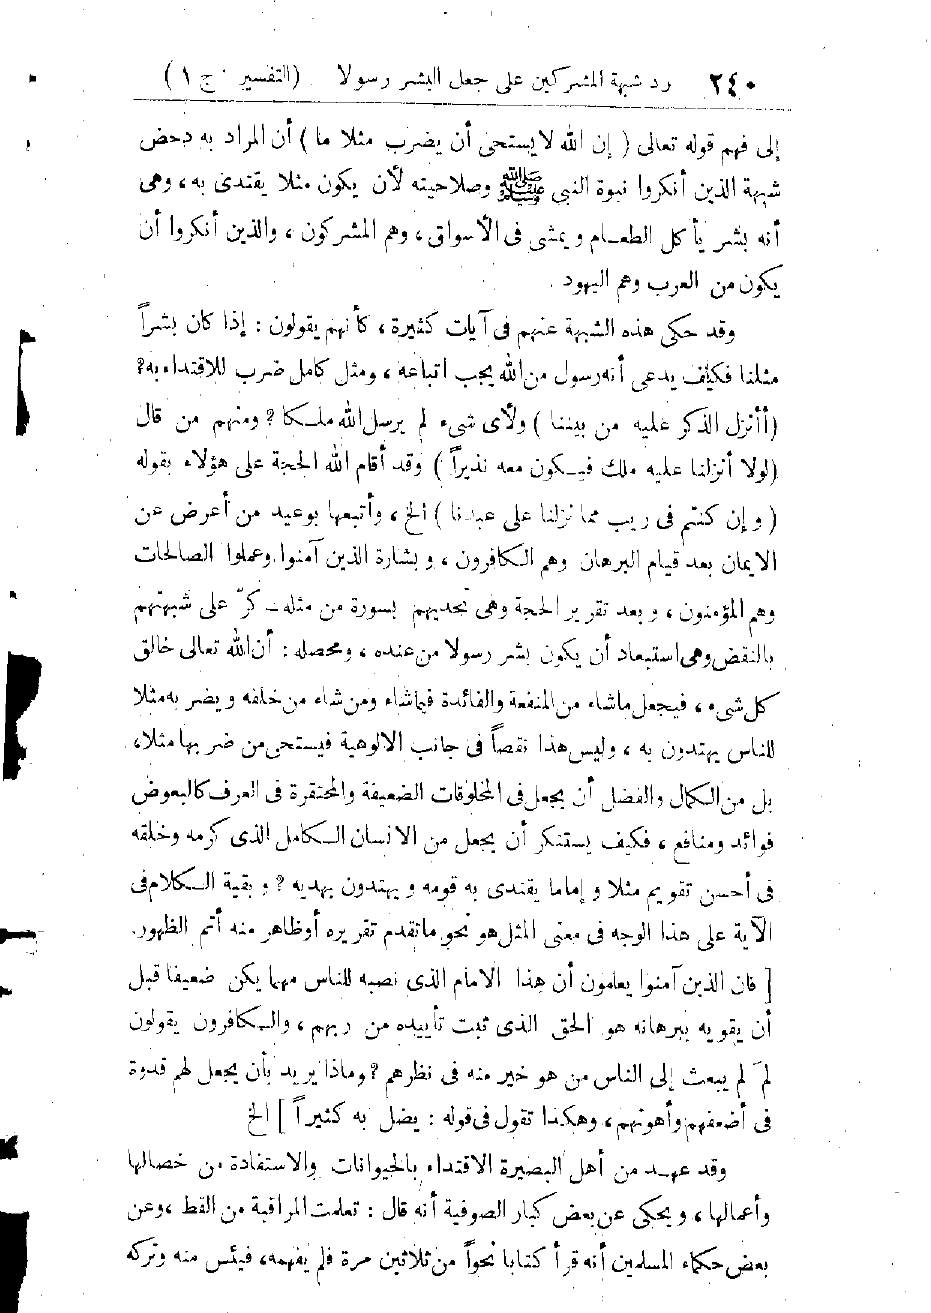 ٢٤٠ رد شبهة المشركين على جعل البشر رسولا (التفسير : ج ١)
إلى فهم قوله تعالى ( إن الله لا يستحى أن يضرب مثلا ما ) أن المراد به دحض
شبهة الذين أنكروا نبوة النبى ﷺ وصلاحيته لأن يكون مثلا يقتدى به ، وهى
أنه بشر يأكل الطعام ويمشى فى الأسواق ، وهم المشركون ، والذين أنكروا أن
يكون من العرب وهم اليهود .
وقد حكى هذه الشبهة عنهم فى آيات كثيرة ، كأنهم يقولون : إذا كان بشراً
مثلنا فكيف يدعى أنه رسول من الله يجب اتباعه ، ومثل كامل ضرب للاقتداء به ؟
(أأنزل الذكر عليه من بيننا ) ولأى شىء لم يرسل الله ملكا ؟ ومنهم من قال
(لولا أنزلنا عليه ملك فيكون معه نذيراً ) وقد أقام الله الحجة على هؤلاء بقوله
( وإن كنتم فى ريب مما نزلنا على عبدنا ) الخ ، وأتبعها بوعيد من أعرض عن
الايمان بعد قيام البرهان وهم الكافرون ، وبشارة الذين آمنوا وعملوا الصالحات
وهم المؤمنون ، وبعد تقرير الحجة وهى تحديهم بسورة من مثله ـ كرّ على شبهتهم
بالنقض وهى استبعاد أن يكون بشر رسولا من عنده ، ومحصله : أن الله تعالى خالق
كل شىء ، فيجعل ماشاء من المنفعة والفائدة فيما شاء ومن شاء من خلقه ويضر به مثلا
للناس يهتدون به ، وليس هذا نقصاً فى جانب الالوهية فيستحى من ضربها مثلا ،
بل من الكمال والفضل أن يجعل فى المخلوقات الضعيفة والمحتقرة فى العرف كالبعوض
فوائد ومنافع ، فكيف يستنكر أن يجعل من الانسان الكامل الذى كرمه وخلقه
فى أحسن تقويم مثلا وإماما يقتدى به قومه ويهتدون بهديه ؟ وبقية الكلام فى
الآية على هذا الوجه فى معنى المثل هو نحو ماتقدم تقريره أوظاهر منه أتم الظهور.
[ فان الذين آمنوا يعلمون أن هذا الامام الذى نصبه للناس مهما يكن ضعيفا قبل
أن يقويه ببرهانه هو الحق الذى ثبت تأييده من ربهم ، والكافرون يقولون
لمَ لم يبعث إلى الناس من هو خير منه فى نظرهم ؟ وماذا يريد بأن يجعل لهم قدوة
فى أضعفهم وأهونهم ، وهكذا تقول فى قوله : يضل به كثيراً ] الخ
وقد عهد من أهل البصيرة الاقتداء بالحيوانات والاستفادة من خصالها
وأعمالها ، ويحكى عن بعض كبار الصوفية أنه قال : تعلمت المراقبة من القط ، وعن
بعض حكماء المسلمين أنه قرأ كتابا نحواً من ثلاثين مرة فلم يفهمه ، فيئس منه وتركه